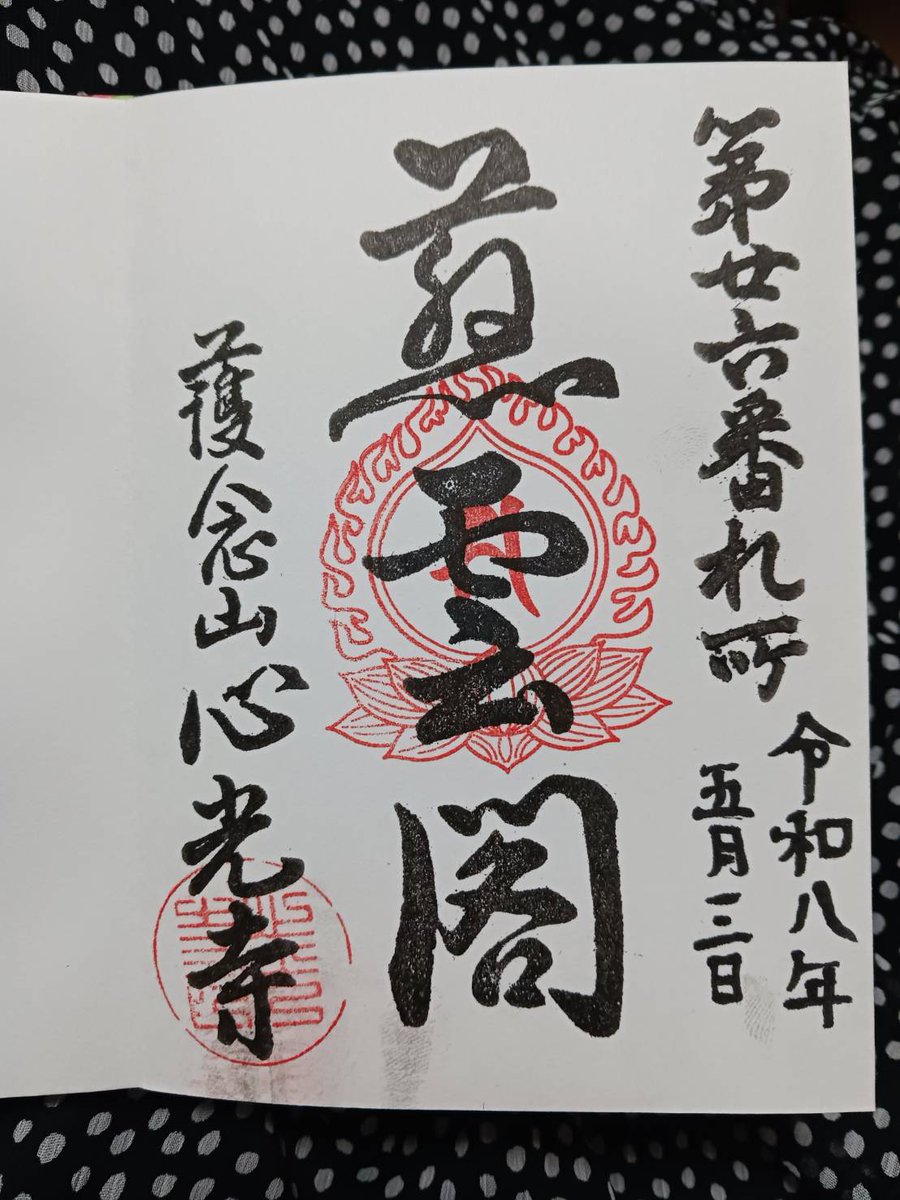 第廿六番札所
令和八年
五月三日
慈雲閣
護念山心光寺